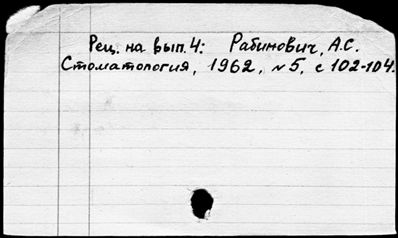 Рец. на вып. 4: Рабинович, А.С.
Стоматология, 1962, №5, с 102-104.